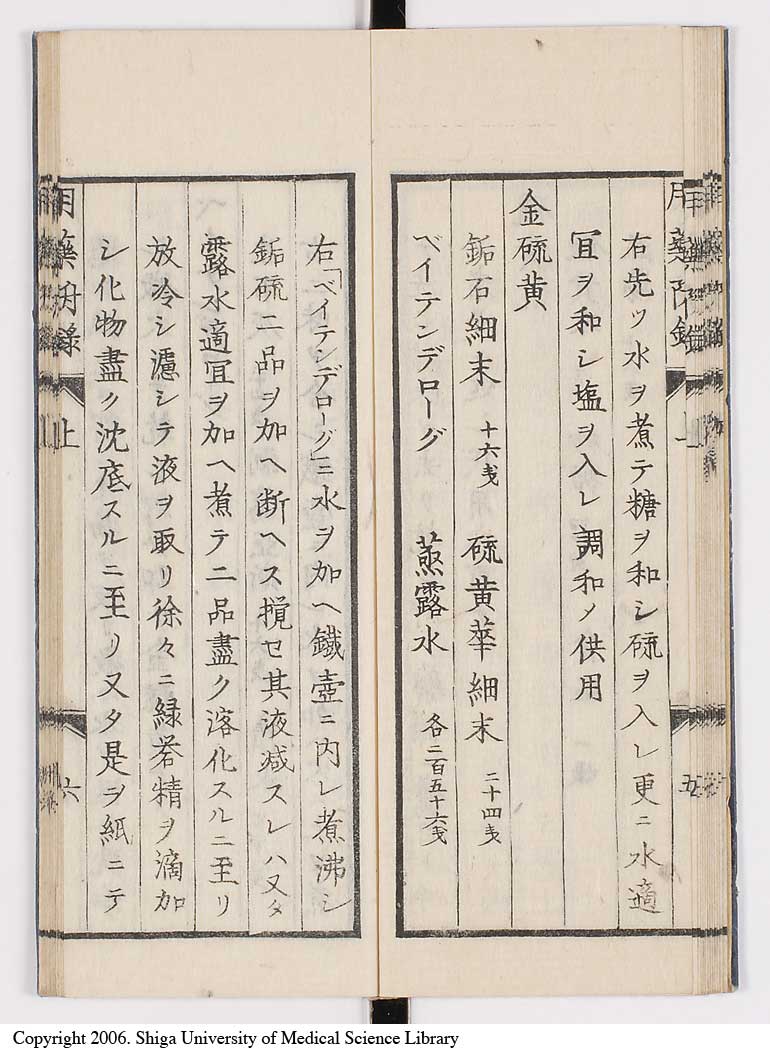 右先ツ水ヲ煮テ糖ヲ和シ硫ヲ入レ更ニ水適
冝ヲ和シ塩ヲ入レ調和ノ供用
金硫黄
鉐石細末 十六戔 硫黄華細末 二十四戔
ベイテンデローグ 蒸露水 各二百五十六戔
五
右「ベイテンデローグ」ニ水ヲ加ヘ鐵壺ニ内レ煮沸シ
鉐硫二品ヲ加ヘ断ヘス攪セ其液减スレハ又タ
露水適冝ヲ加ヘ煮テ二品盡ク溶化スルニ至リ
放冷シ濾シテ液ヲ取リ徐々ニ緑礬精ヲ滴加
シ化物盡ク沈底スルニ至リ又タ是ヲ紙ニテ
上
六
Copyright 2006. Shiga University of Medical Science Library